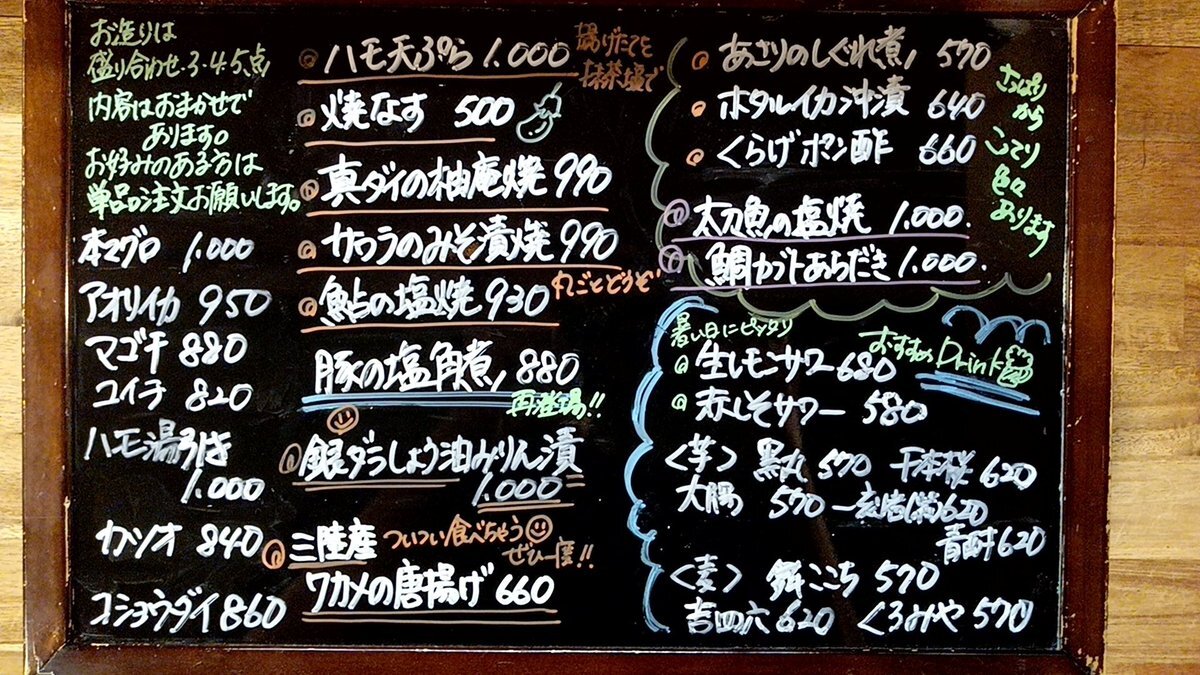 お造りは
盛り合わせ・3・4・5点
内容はおまかせで
あります。
お好みのある方は
単品の注文お願いします。
本マグロ 1.000
アオリイカ 950
マゴチ 880
コイチ 820
ハモ湯引き
1.000
カツオ 840
コショウダイ 860
ハモ天ぷら 1.000
揚げたてを
抹茶塩で
焼なす 500
真ダイの柚庵焼 990
サワラのみそ漬焼 990
鮎の塩焼 930
丸ごとどうぞ
豚の塩角煮 880
再登場!!
銀ダラしょう油みりん漬
1.000
三陸産
ついつい食べちゃう
ぜひ一度!!
ワカメの唐揚げ 660
あさりのしぐれ煮 570
ホタルイカ沖漬 640
くらげポン酢 660
さっぱり
から
こってり
色々
あります
太刀魚の塩焼 1.000.
鯛カブトあらだき 1.000.
暑い日にピッタリ
おすすめ Drink
生レモンサワー 680
赤しそサワー 580
<芋> 黒丸 570 千本桜 620
570 620
620
<麦> 570
吉四六 620 くろみや 570